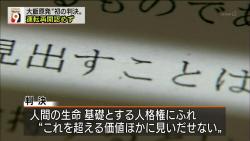 大飯原発"初の判決。
運転再開認めず
9
もので
見出すことは
判決
人間の生命 基礎とする人格権にふれ
"これを超える価値ほかに見いだせない"